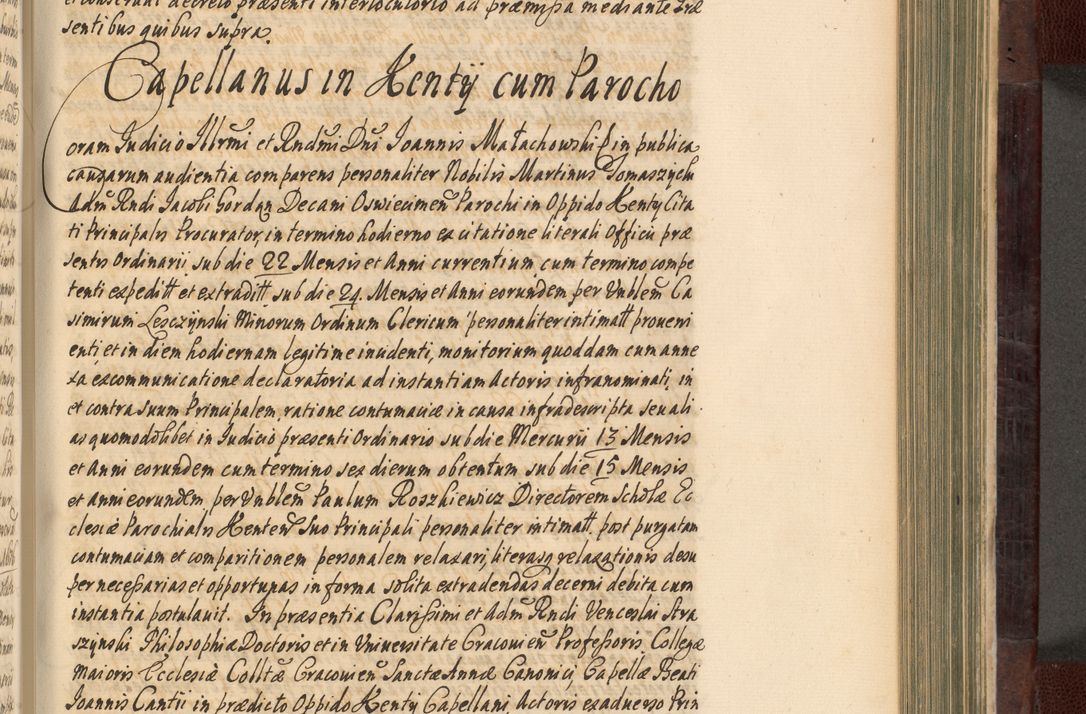 et conservari decreto præsenti interlocutorio ad præmissa mediante Præ
sentibus quibus supra.
Capellanus in Kenty cum Parocho
Coram Judicio Illrmi et Rndmi Dni Joannis Małachowski E in publica
causarum audientia comparens personaliter Nobilis Martinus Tomaszych
Adm Rndi Jacobi Gordan Decani Oswiecimen Parochi in Oppido Kenty Cita
ti Principalis Procurator, in termino hodierno ex citatione literali Officii præ
sentis Ordinarii, sub die 22 Mensis et Anni currentium, cum termino compe
tenti expeditt et extraditt sub die 24. Mensis et Anni eorundem per Vnblem Ca
simirum Lesczynski Minorum Ordinum Clericum personaliter intimatt proveni
enti et in diem hodiernam legitime incidenti, monitorium quoddam cum anne
xa excommunicatione declaratoria ad instantiam Actoris infranominati, in
et contra suum Principalem, ratione contumaciæ in causa infradescripta seu ali
as quomodolibet in Judicio præsenti Ordinario sub die Mercurii 13 Mensis
et Anni eorundem cum termino sex dierum obtentum sub die 15 Mensis
et anni eorundem per Vnblem Paulum Roszkiewicz Directorem Scholæ Ec
clesiæ Parochialis Kenten Suo Principali personaliter intimatt. post purgatam
contumaciam et comparitionem personalem relaxari, literasq relaxationis desu
per necessarias et opportunas in forma solita extradendas decerni debita cum
instantia postulavit. In præsentia Clarissimi et Adm Rndi Venceslai Stra
szynski Philosophiæ Doctoris et in Vniversitate Cracovien Professoris, Collegæ
Maioris Ecclesiæ Colltæ Cracovien Sanctæ Annæ Canonici, Capellæ Beati
Joannis Cantii in prædicto Oppido Kenty Capellani, Actoris ex adverso Prin